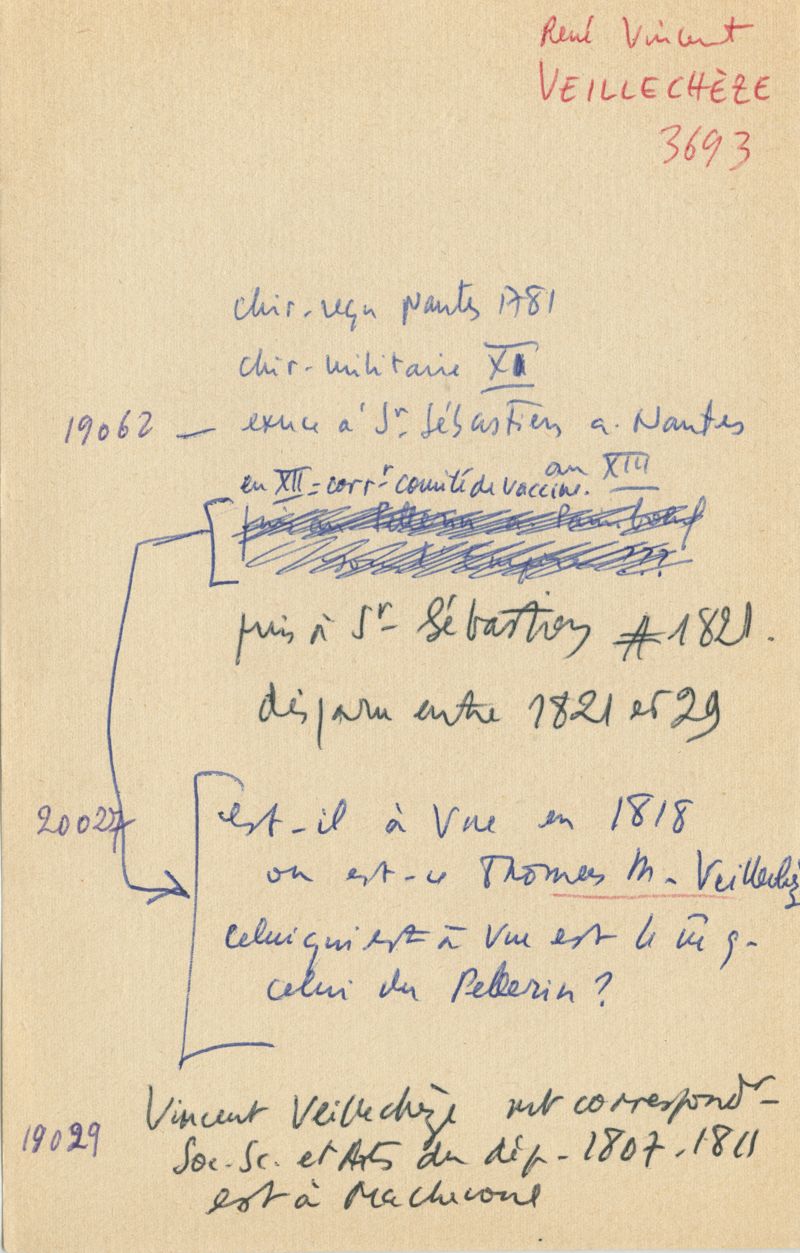 René Vincent
VEILLECHÈZE
3693
chir. reçu Nantes 1781
chir. militaire XI
19062 — exerce à St. Sébastien a. Nantes
an XIII
en XII = corrt comité de vaccine.
puis à St. Sébastien # 1821.
disparu entre 1821 et 29
20027 est-il à Vue en 1818
ou est-ce Thomas M. Veillechèz
celui qui est à Vue est le m̄ q.
celui du Pellerin ?
Vincent Veillechèze est correspondt
19029 Soc. Sc. et Arts du dép. 1807.1811
est à Machecoul